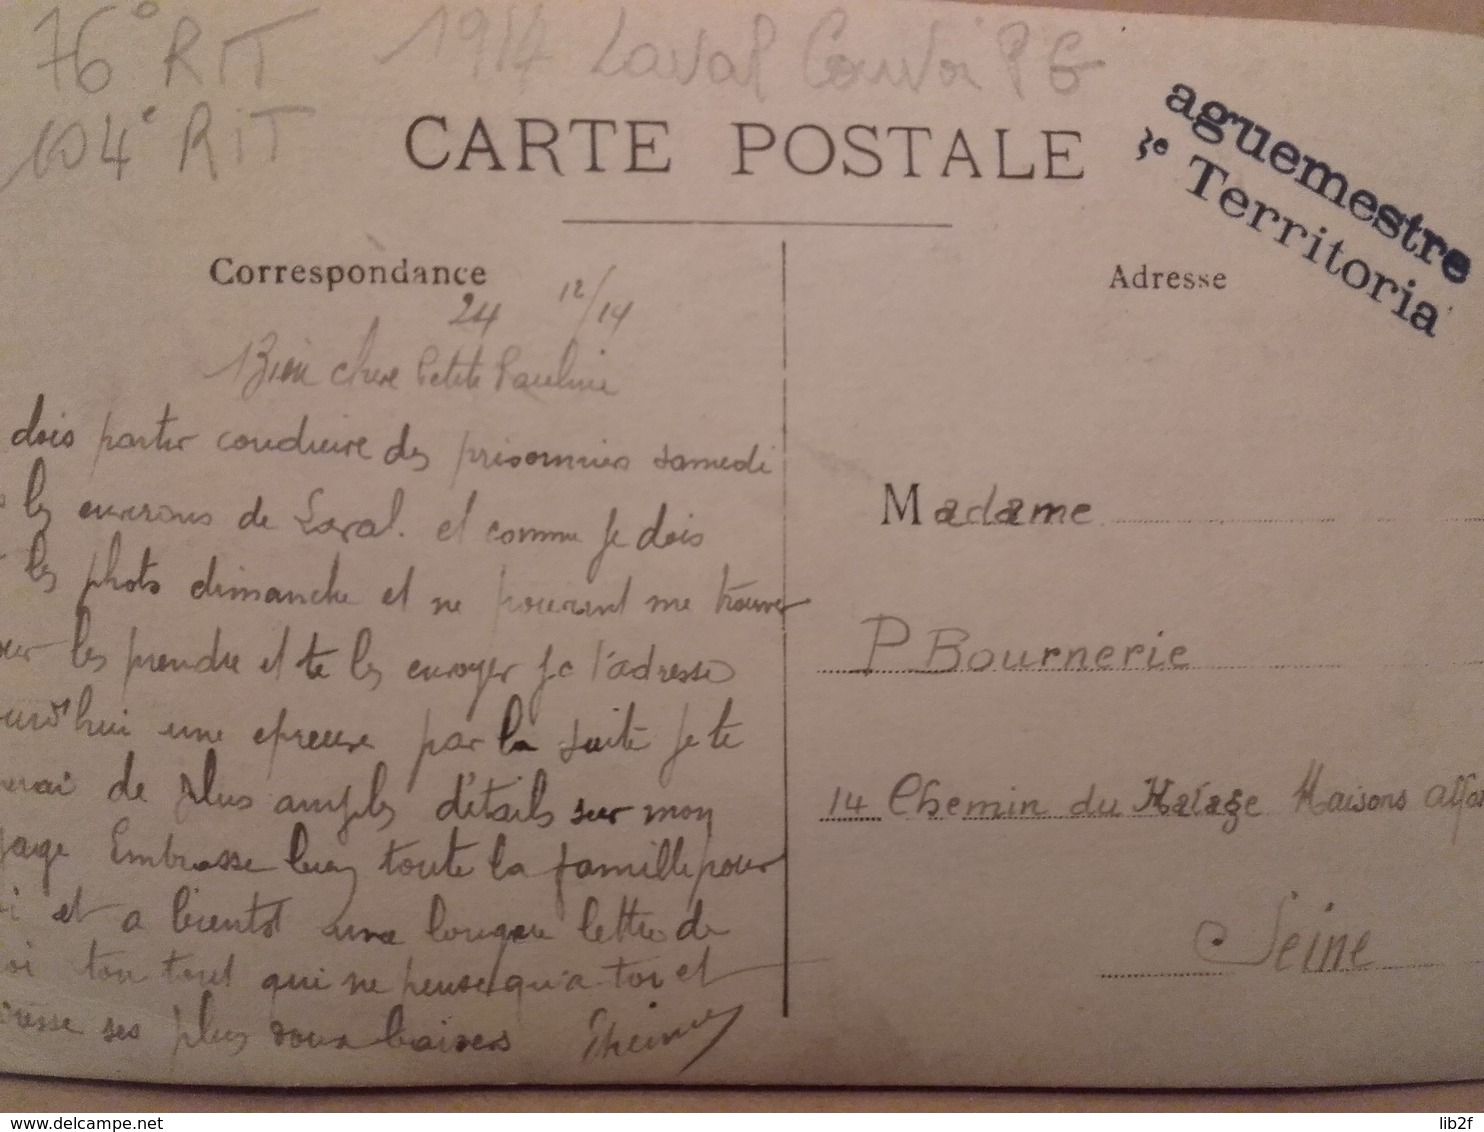 76° RIT 1914 Laval Convoi PG
104e RIT
CARTE POSTALE
aguemestre
3e Territoria
Correspondance
Adresse
24 12/14
Bien chere Petite Pauline
dois partir conduire des prisonniers samedi
les environs de Laval. et comme je dois
les photo dimanche et ne pouvant me trouver
les prendre et te les envoyer je t'adresse
ourd'hui une epreuve par la suite je te
de plus amples détails sur mon
Embrasse bien toute la famille pour
et a bientot une longue lettre de
ton tout qui ne pense qu'a toi et
ses plus doux baisers
Madame
P Bournerie
14 Chemin du Halage Maisons Alfo
Seine
www.delcampe.net
lib2f